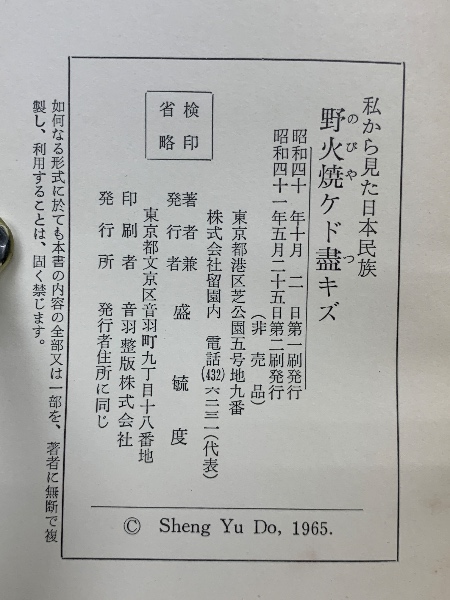 私から見た日本民族
野火焼ケド盡キズ
のびや
つ
昭和四十 年十月 二 日第一刷発行
昭和四十一年五月二十五日第二刷発行
(非売品)
検印
省略
東京都港区芝公園五号地九番
株式会社留園内 電話(432)六二三一(代表)
著者兼
発行者 盛毓度
東京都文京区音羽町九丁目十八番地
印刷者 音羽整版株式会社
発行所 発行者住所に同じ
如何なる形式に於ても本書の内容の全部又は一部を、著者に無断で複
製し、利用することは、固く禁じます。
© Sheng Yu Do, 1965.